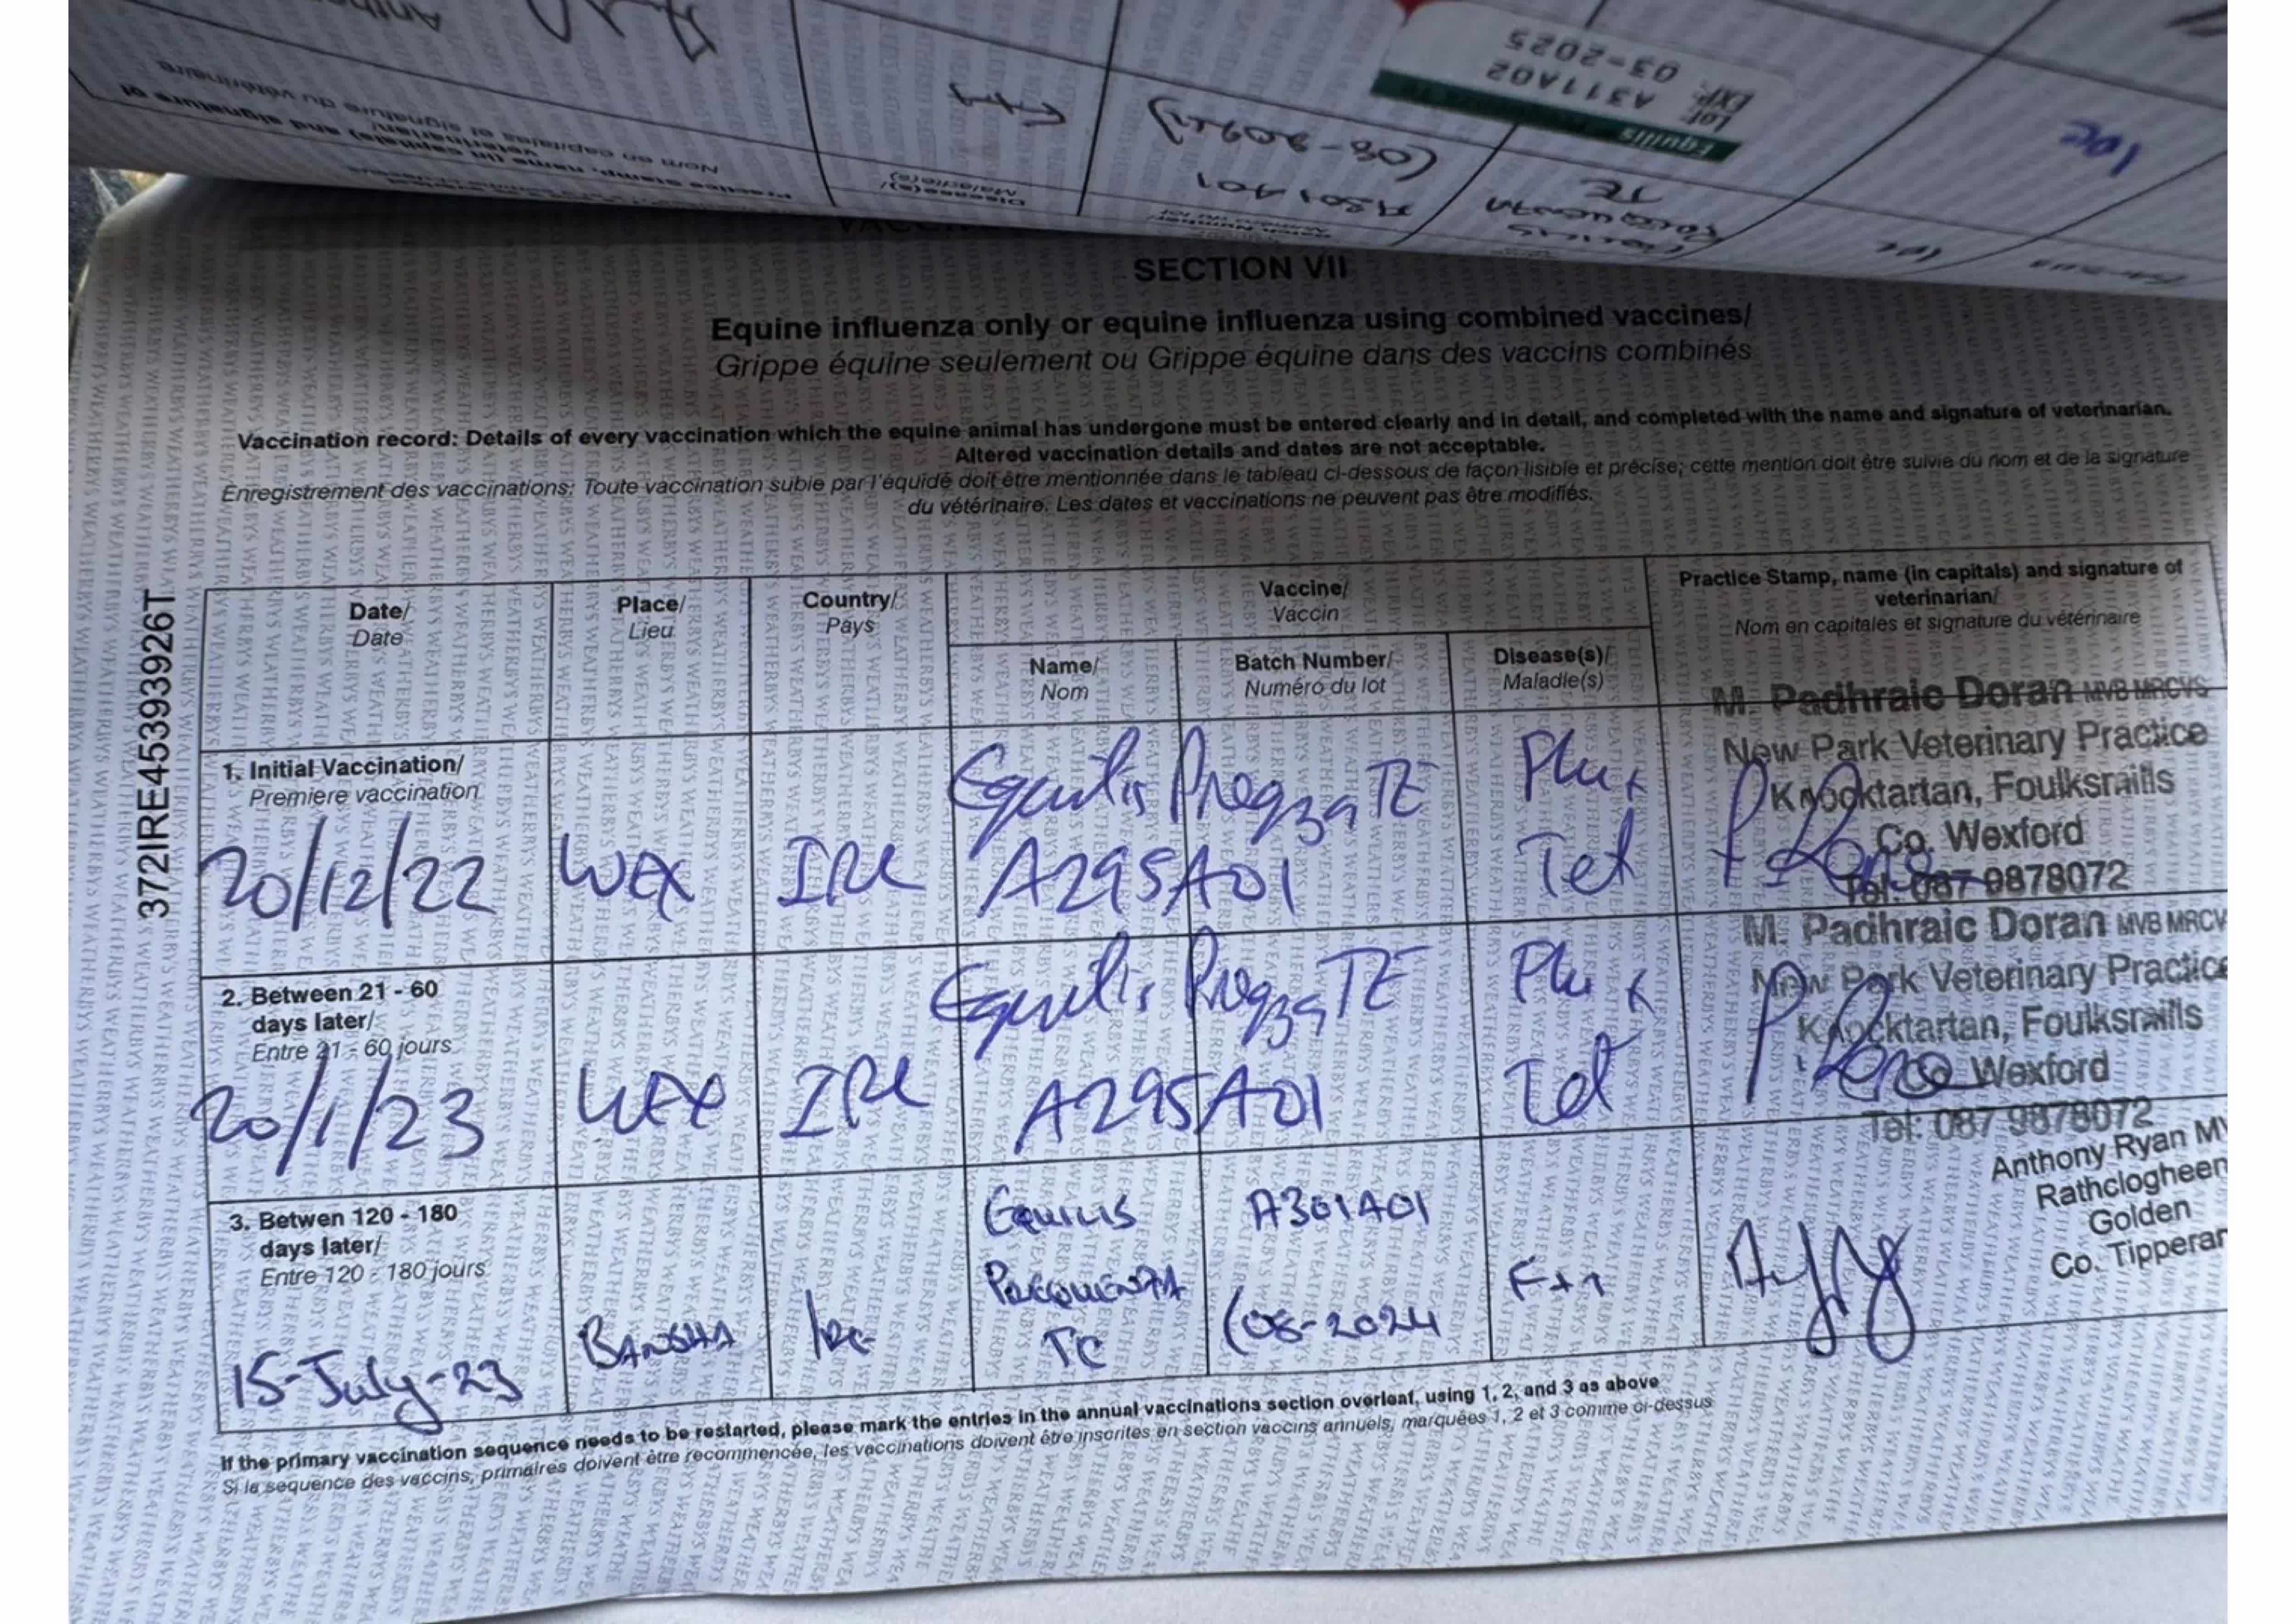 Anthon
Practice stamp, name (in capitals) and signature of
veterinarian/
Nom en capitales et signature du vétérinaire
Disease(s)/
Maladie(s)
F+T
A301A01
(08-2024)
Equilis
TE
Equilis
LOT: A311A02
EXP: 03-2025
IRE
IRE
SECTION VII
Equine influenza only or equine influenza using combined vaccines/
Grippe équine seulement ou Grippe équine dans des vaccins combinés
Vaccination record: Details of every vaccination which the equine animal has undergone must be entered clearly and in detail, and completed with the name and signature of veterinarian.
Altered vaccination details and dates are not acceptable.
Enregistrement des vaccinations: Toute vaccination subie par l'équidé doit être mentionnée dans le tableau ci-dessous de façon lisible et précise; cette mention doit être suivie du nom et de la signature
du vétérinaire. Les dates et vaccinations ne peuvent pas être modifiés.
372IRE45393926T
Date/
Date
Place/
Lieu
Country/
Pays
Vaccine/
Vaccin
Name/
Nom
Batch Number/
Numéro du lot
Disease(s)/
Maladie(s)
Practice Stamp, name (in capitals) and signature of
veterinarian/
Nom en capitales et signature du vétérinaire
1. Initial Vaccination/
Premiere vaccination
20/12/22
WEX
IRE
Equilis Preqza TE
A295A01
Flu +
Tet
M. Padhraic Doran MVB MRCVS
New Park Veterinary Practice
Knocktartan, Foulksmills
Co. Wexford
Tel: 087 9878072
2. Between 21 - 60
days later/
Entre 21 - 60 jours
20/1/23
WEX
IRE
Equilis Preqza TE
A295A01
Flu +
Tet
M. Padhraic Doran MVB MRCV
New Park Veterinary Practice
Knocktartan, Foulksmills
Co. Wexford
Tel: 087 9878072
3. Betwen 120 - 180
days later/
Entre 120 - 180 jours
15-July-23
BANSHA
IRE
EQUILIS
TE
A301A01
(08-2024
F+T
Anthony Ryan MV
Rathclogheen
Golden
Co. Tipperar
If the primary vaccination sequence needs to be restarted, please mark the entries in the annual vaccinations section overleaf, using 1, 2, and 3 as above
Si la sequence des vaccins, primaires doivent être recommencée, les vaccinations doivent être inscrites en section vaccins annuels, marquées 1, 2 et 3 comme ci-dessus